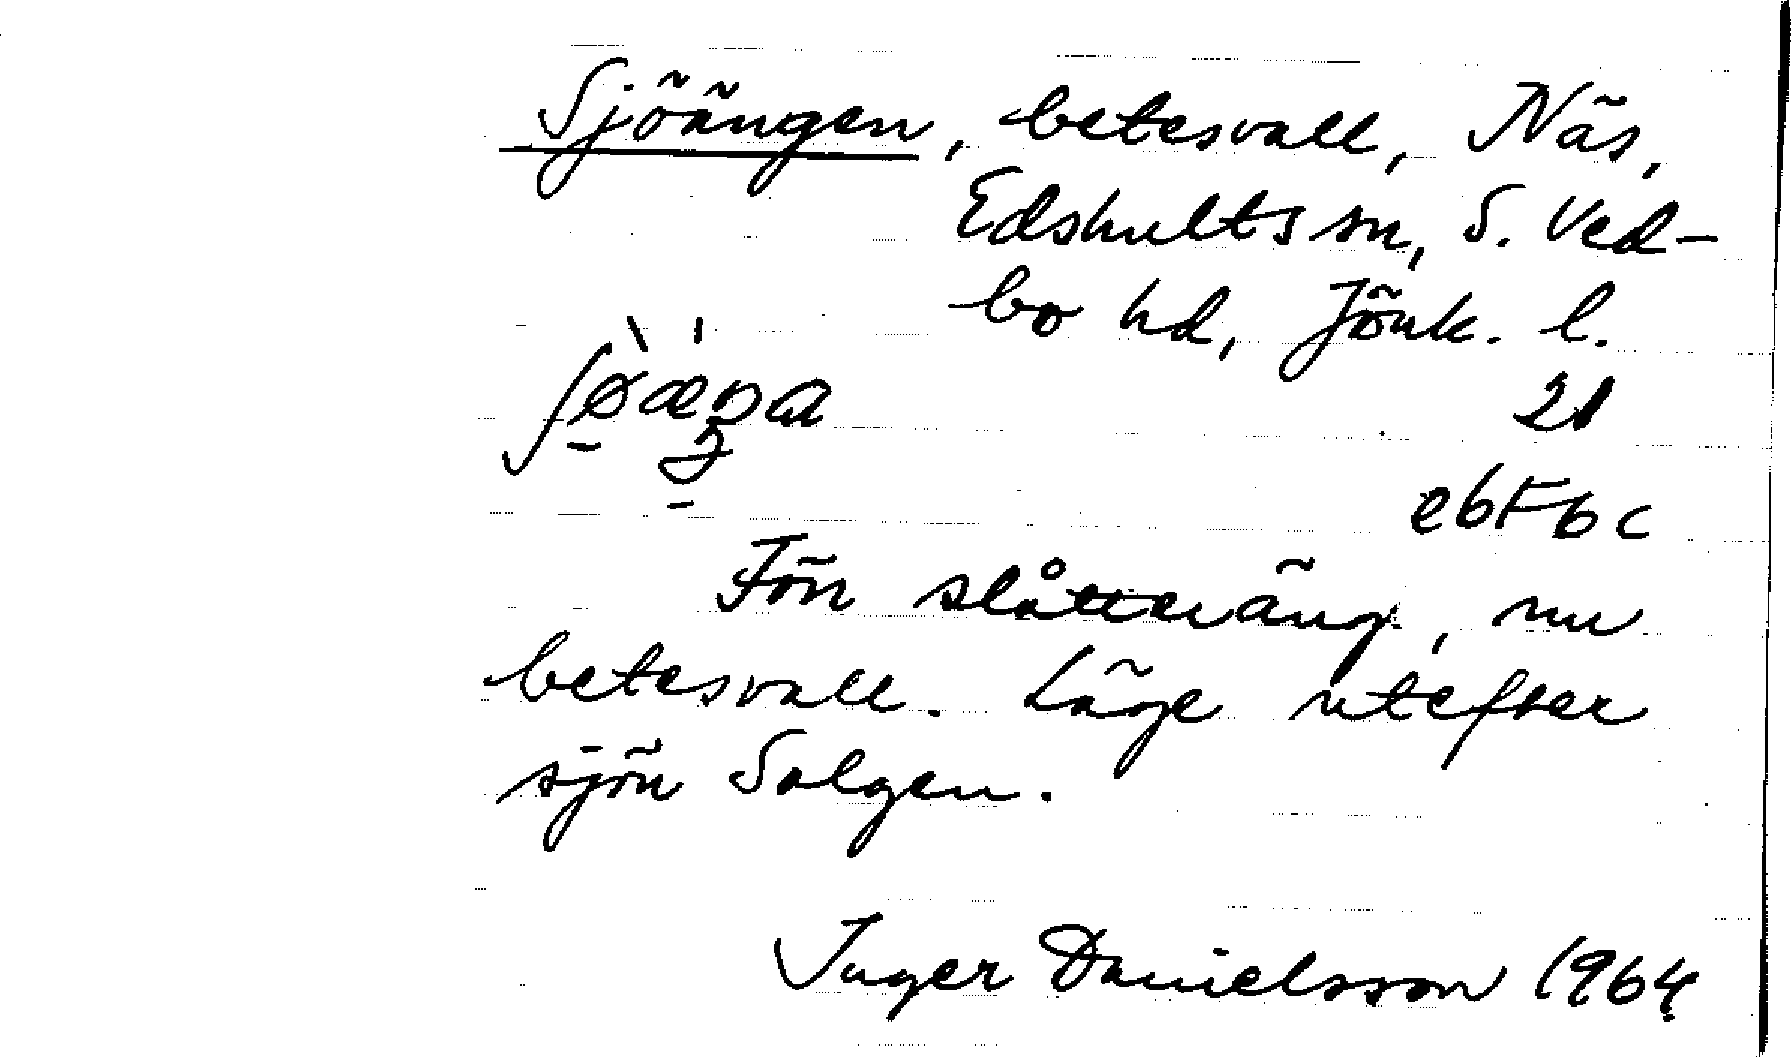 Sjöängen, betesvall, Näs,
Edshults sn, S. Ved-
bo hd, Jönk. l.
ʃø̠̀ǽŋa
21
ebFbc
Förr slåtteräng, nu
betesvall. Läge utefter
sjön Solgen.
Inger Danielsson 1964